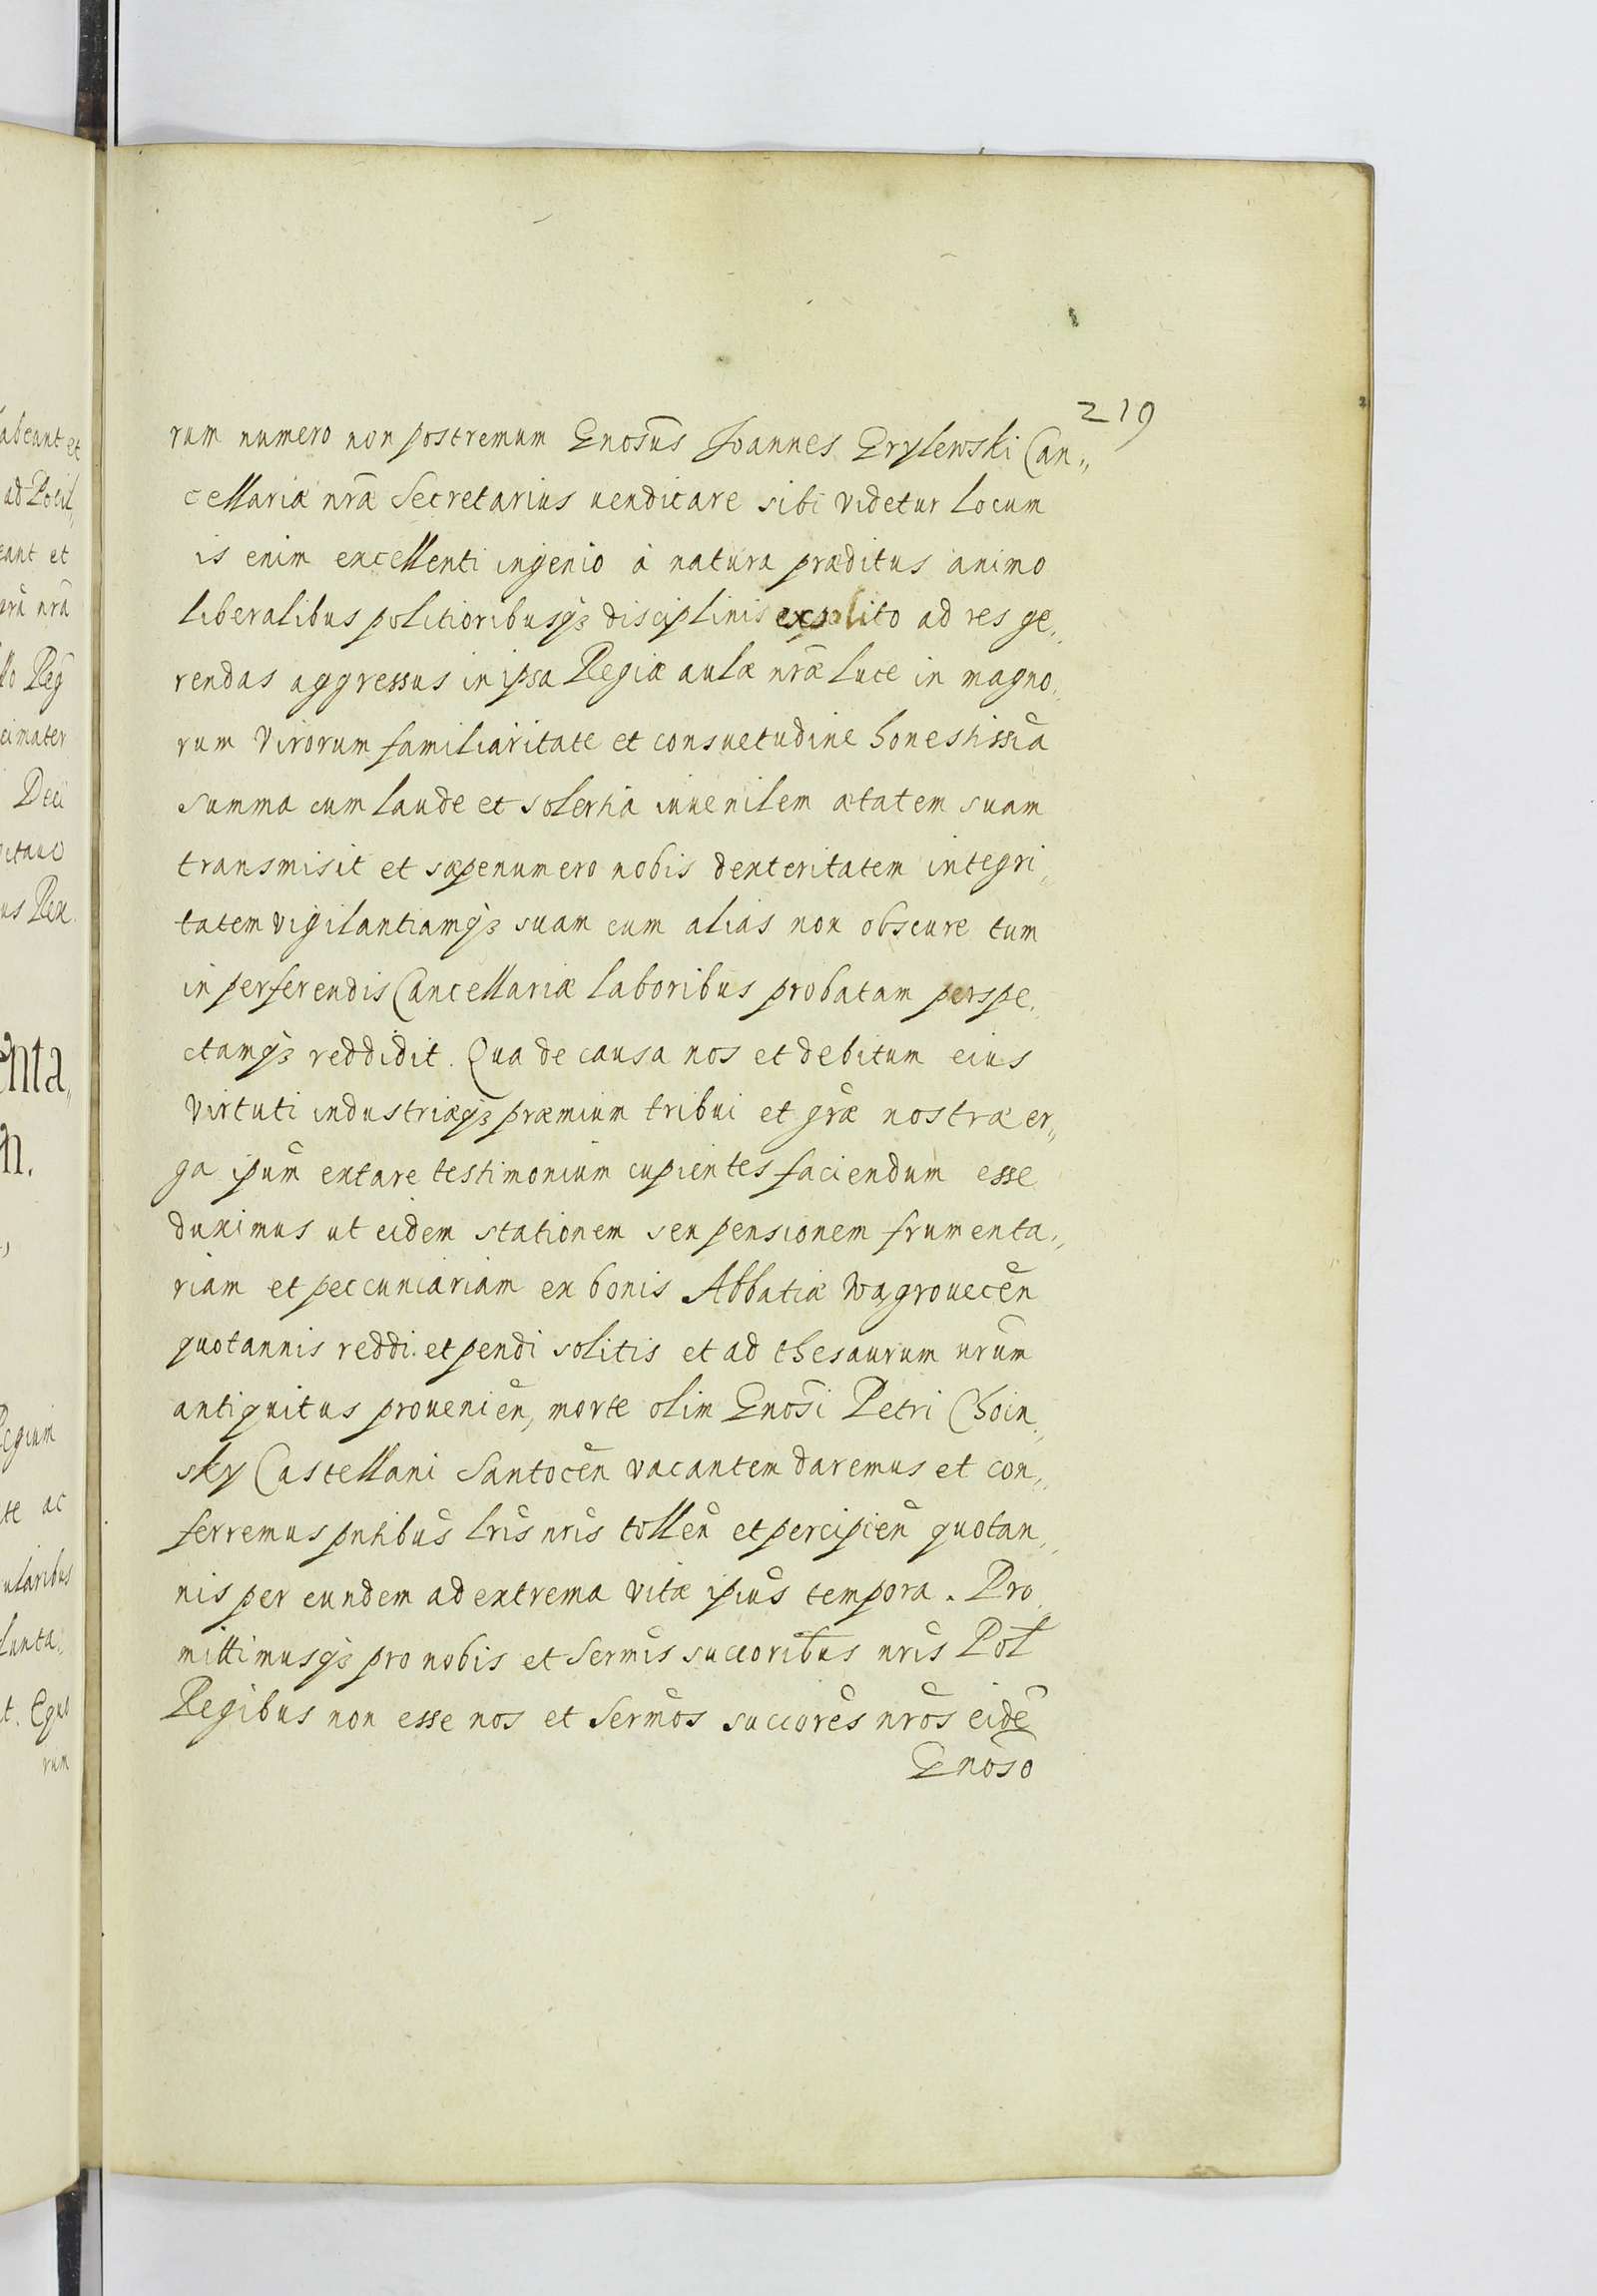 219
rum numero non postremum Gnosus Joannes Grylewski Can„
cellariæ nr̃æ Secretarius uendicare sibi videtur locum
is enim excellenti ingenio à natura præditus animo
liberalibus politioribusq3 disciplinis expolito ad res ge„
rendas aggressus in ipsa Regiæ aulæ nr̃æ luce in magno„
rum virorum familiaritate et consuetudine honestissia
summa cum laude et solertia iuuenilem ætatem suam
transmisit et sæpenumero nobis dexteritatem integri„
tatem vigilantiamq3 suam cum alias non obscure tum
in perferendis Cancellariæ laboribus probatam perspe„
ctamq3 reddidit. Qua de causa nos et debitum eius
virtuti industriæq3 præmium tribui et grãe nostræ er„
ga ipum extare testimonium cupientes faciendum esse
duximus ut eidem stationem seu pensionem frumenta„
riam et peccuniariam ex bonis Abbatiæ Wągrouecen
quotannis reddi et pendi solitis et ad thesaurum nrum
antiquitus prouenien, morte olim Gnosi Petri Choin„
sky Castellani Santocen vacantem daremus et con„
ferremus pntibus lris nris tollen et percipien quotan„
nis per eundem ad extrema vitæ ipius tempora. Pro„
mittimusq3 pro nobis et Sermis succoribus nris Pol
Regibus non esse nos et Sermos succores nros eidẽ
Gnoso